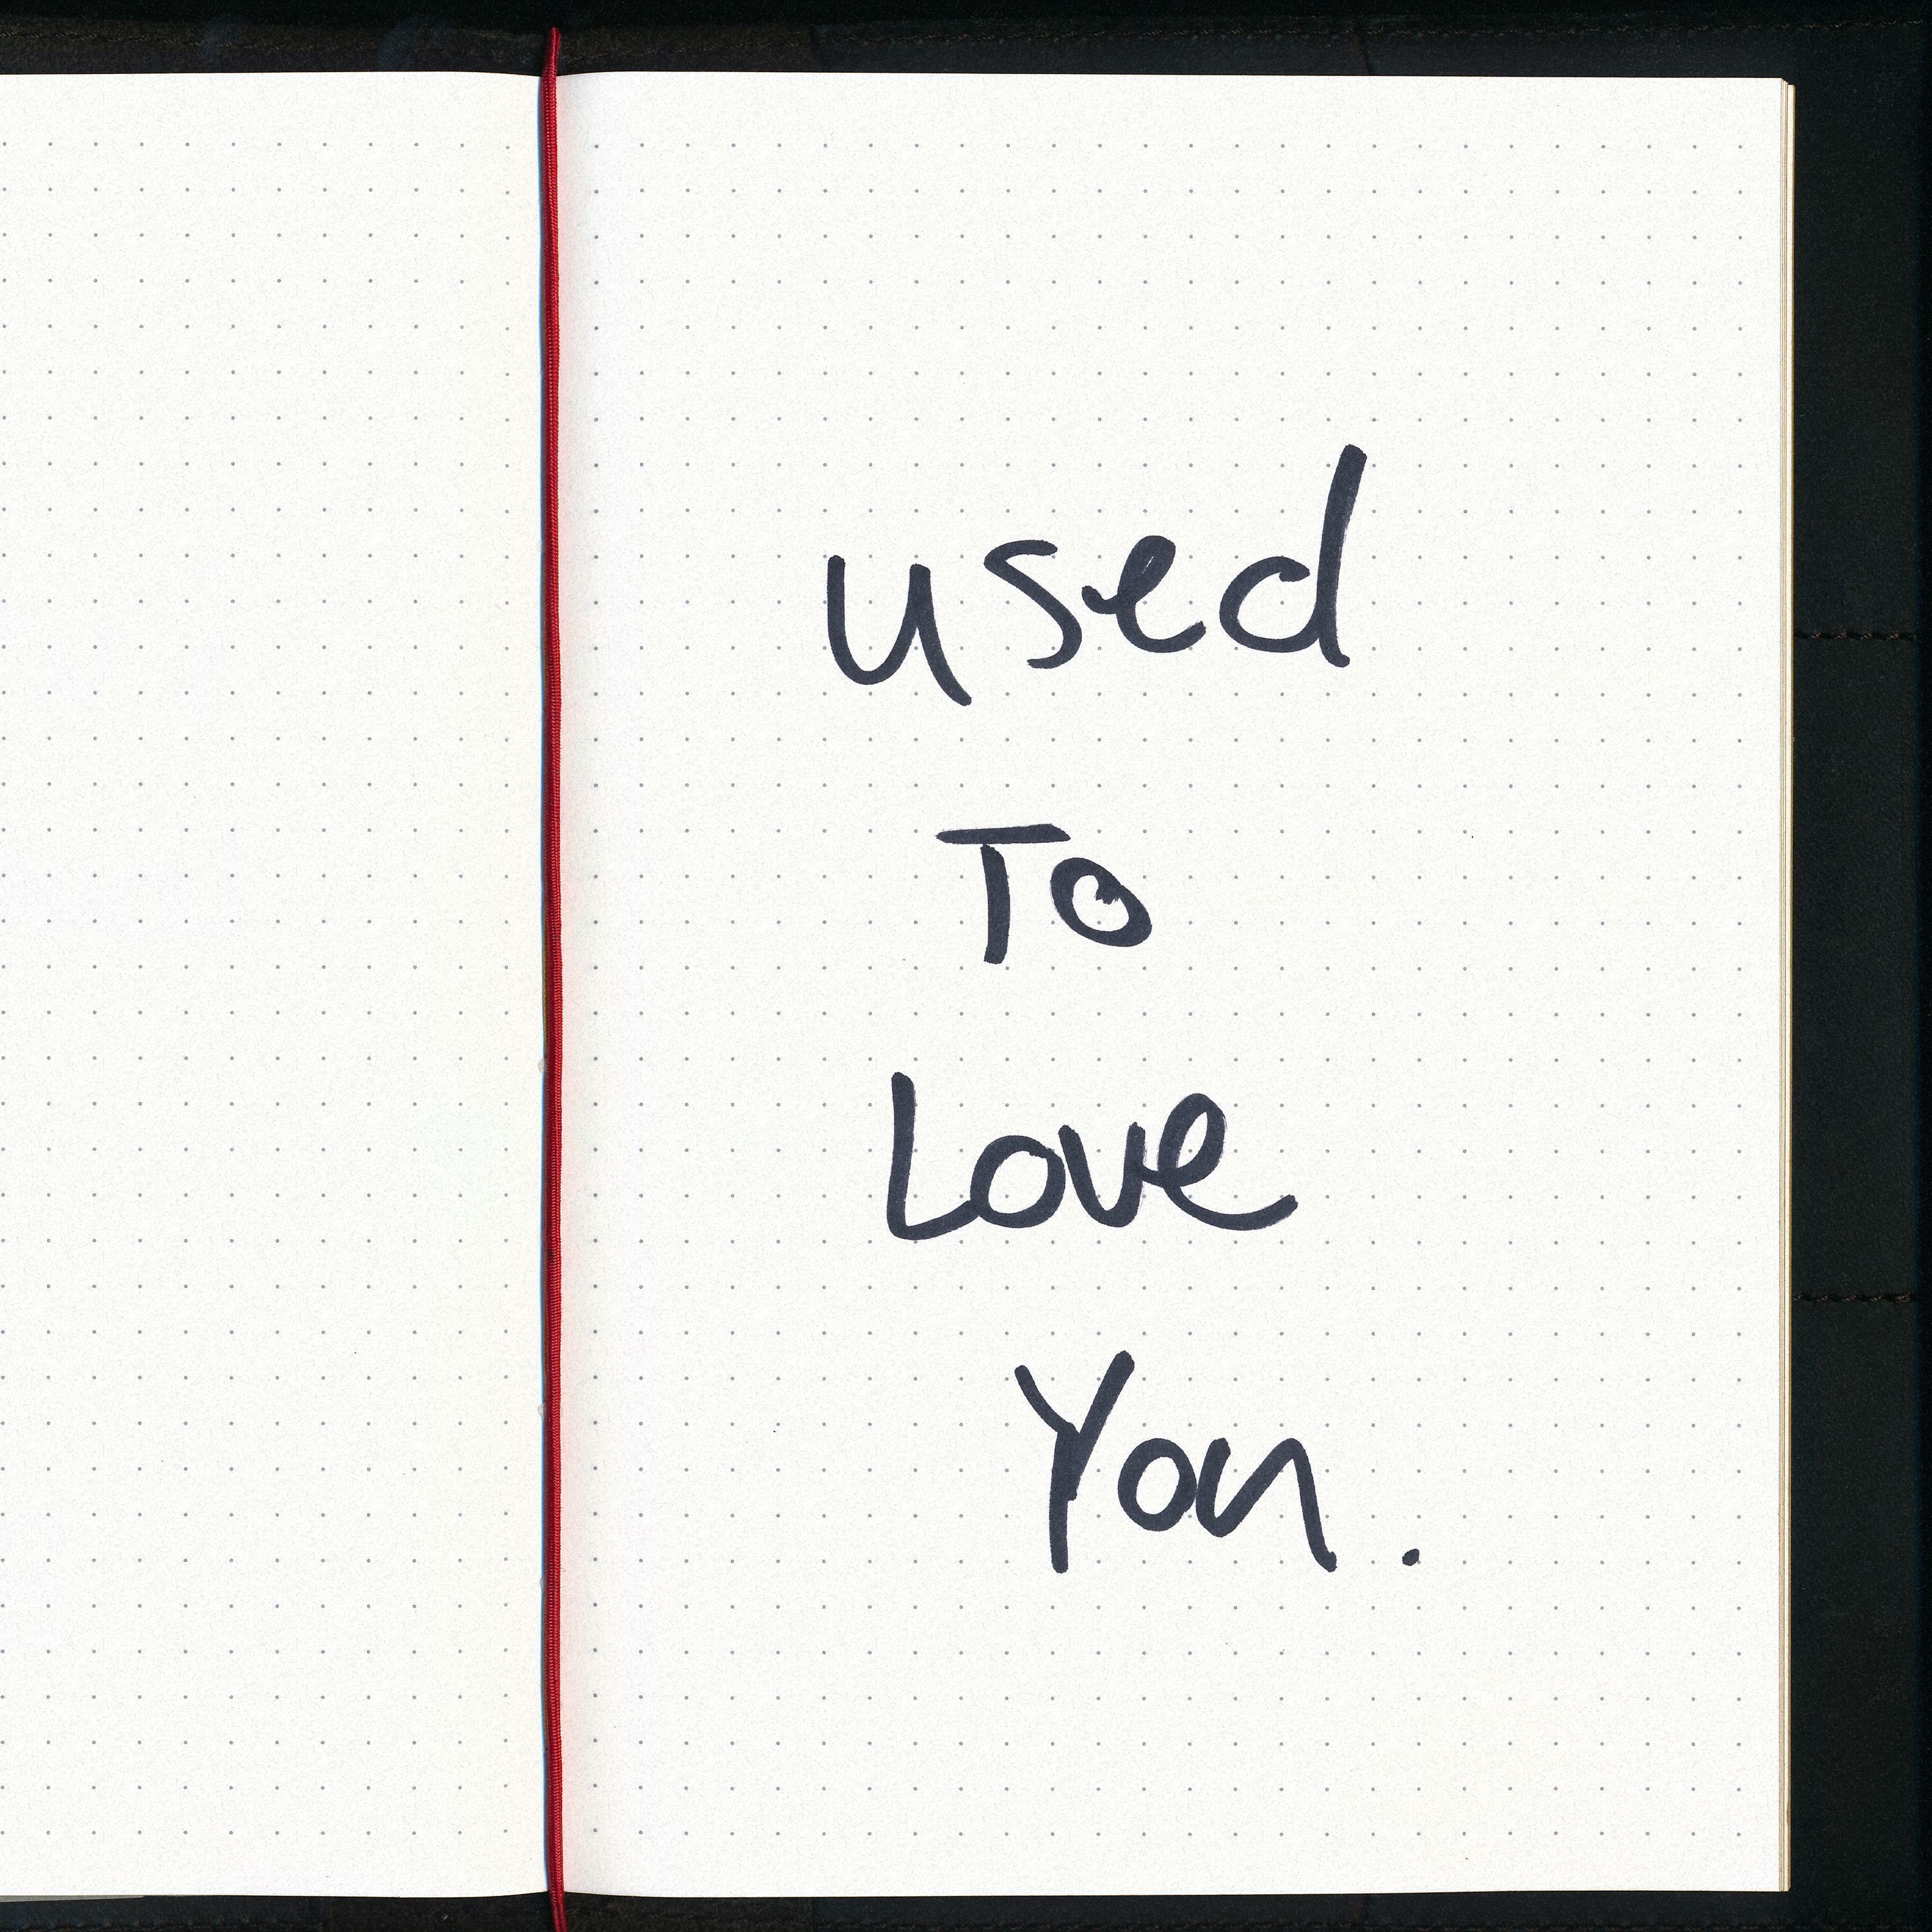 used
To
Love
You.